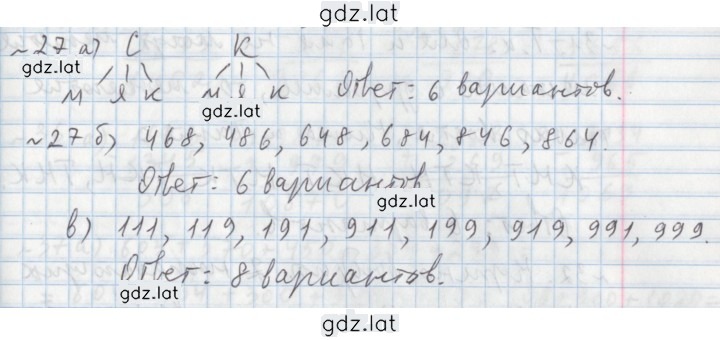 gdz.lat
~27 а) С К
gdz.lat
м я к м я к Ответ: 6 вариантов.
~27 б) 468, 486, 648, 684, 846, 864.
Ответ: 6 вариантов
gdz.lat
в) 111, 119, 191, 911, 199, 919, 991, 999.
Ответ: 8 вариантов.
gdz.lat
gdz.lat